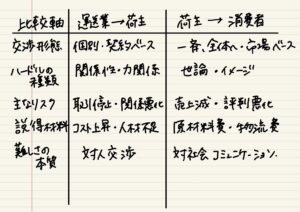 比較軸 運送業→荷主 荷主→消費者
交渉形態 個別・契約ベース 一斉、全体へ・市場ベース
ハードルの種類 関係性・力関係 世論・イメージ
主なリスク 取引停止・関係悪化 売上減・評判悪化
説得材料 コスト上昇・人材不足 原材料費・物流費
難しさの本質 対人交渉 対社会コミュニケーション